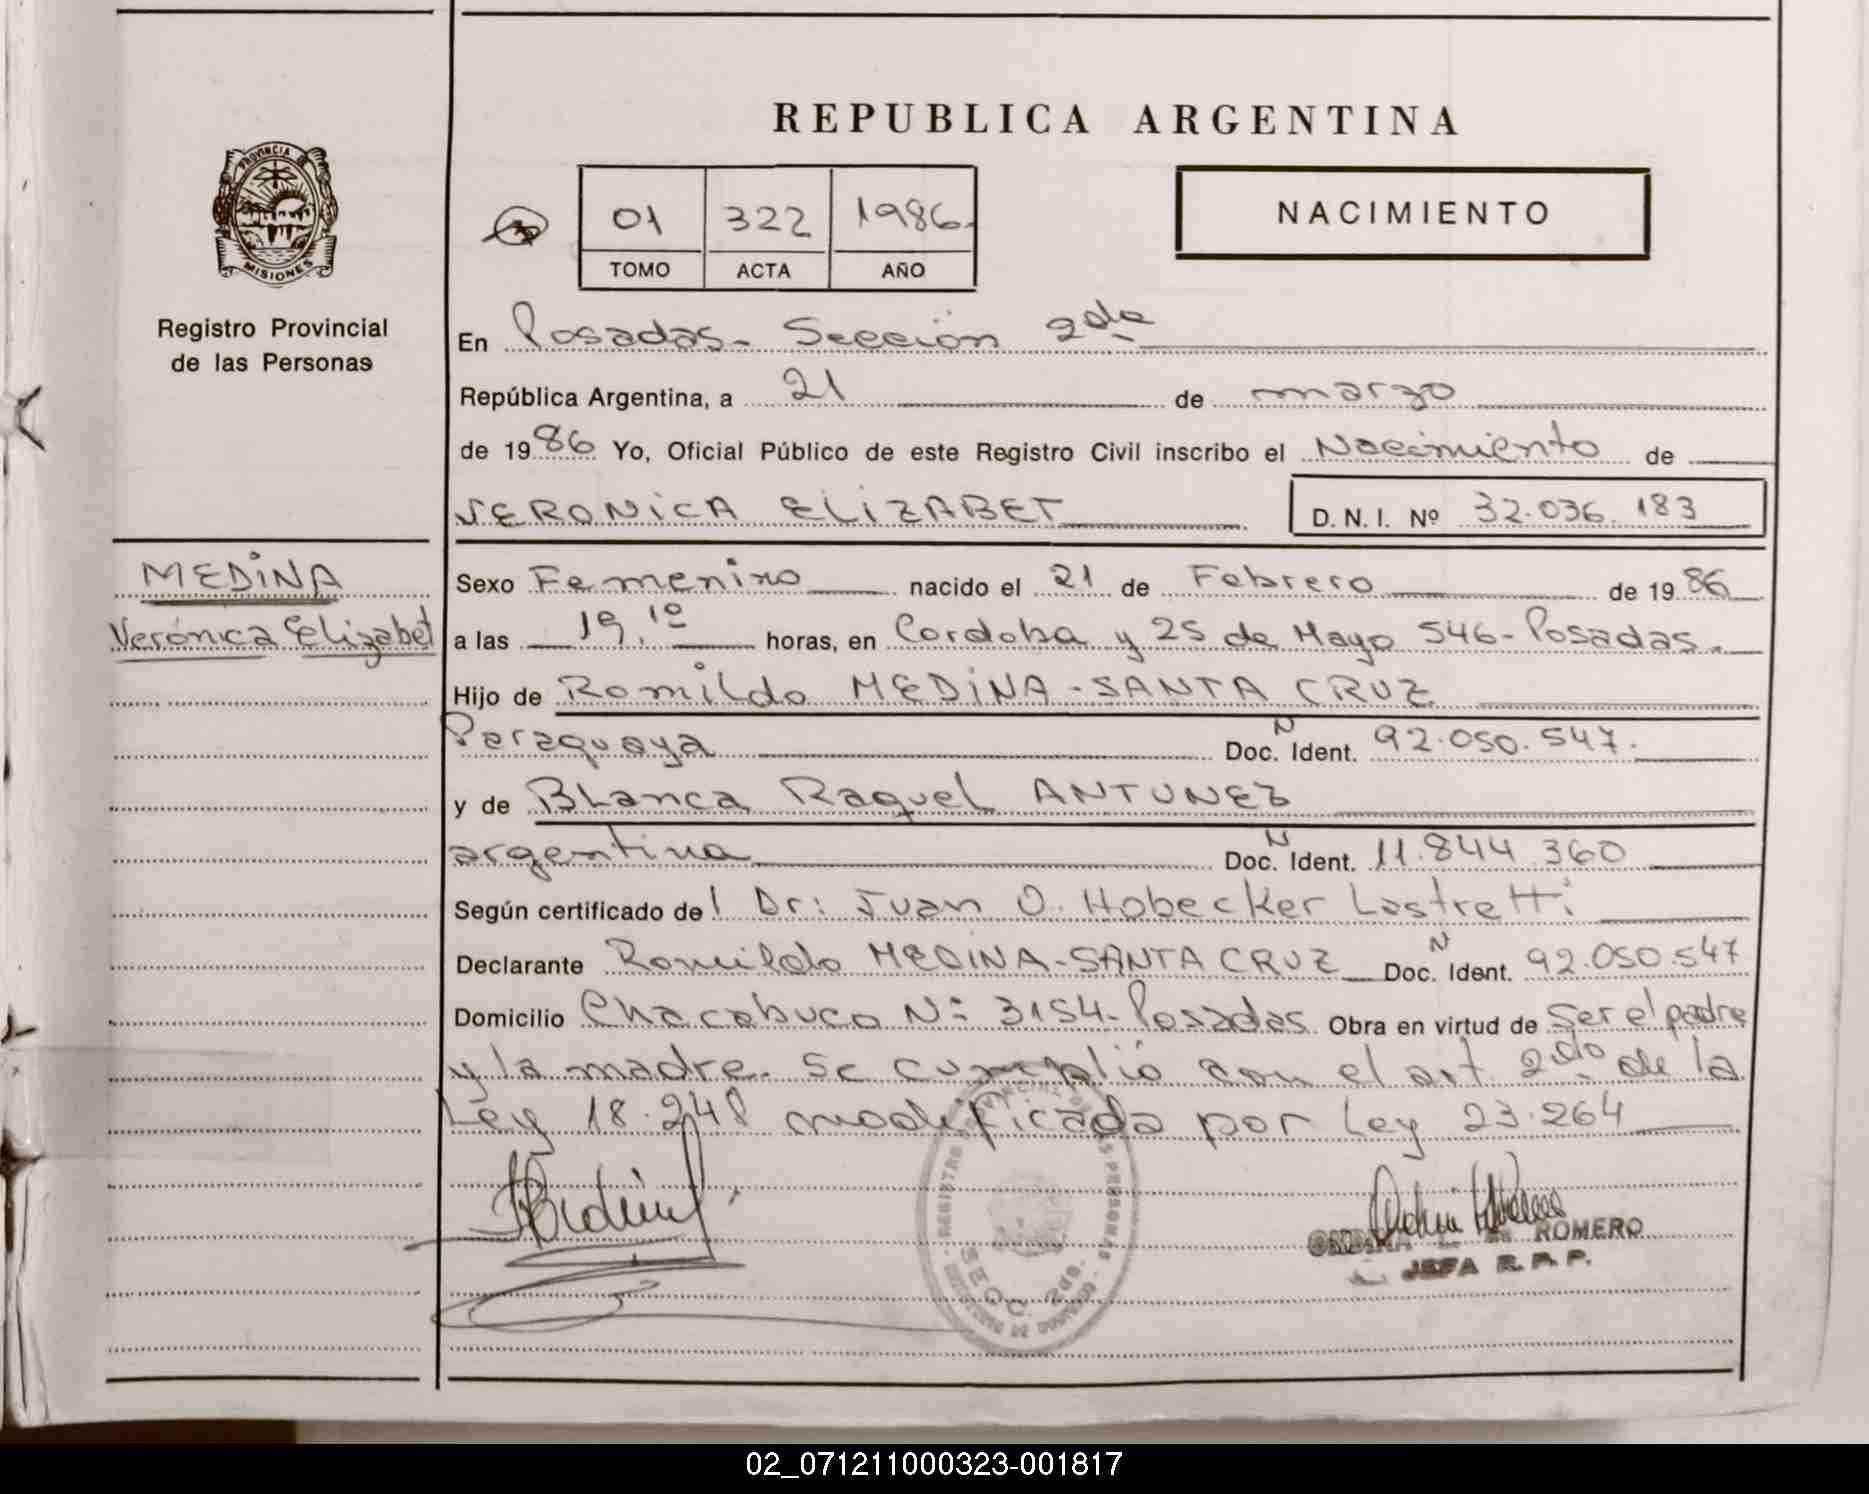 REPUBLICA ARGENTINA
PROVINCIA DE
MISIONES
Registro Provincial
de las Personas
01 322 1986.
TOMO ACTA AÑO
NACIMIENTO
En Posadas. Sección 2da
República Argentina, a 21 de marzo
de 1986 Yo, Oficial Público de este Registro Civil inscribo el Nacimiento de
VERONICA ELIZABET D. N. I. Nº 32.036.183
MEDINA
Verónica Elizabet
Sexo Femenino nacido el 21 de Febrero de 1986
a las 19.10 horas, en Cordoba y 25 de Mayo 546-Posadas.
Hijo de Romildo MEDINA-SANTA CRUZ
Paraguaya Doc. N Ident. 92.050.547.
y de Blanca Raquel ANTUNEZ
argentina Doc. N Ident. 11.844.360
Según certificado del Dr: Juan O. Hobecker Lastretti
Declarante Romildo MEDINA-SANTA CRUZ Doc. N Ident. 92.050.547
Domicilio Chacabuco Nº 3154-Posadas Obra en virtud de Ser el padre
y la madre. Se cumplió con el art. 2do de la
Ley 18.248 modificada por Ley 23.264
REGISTRO PROVINCIAL DE LAS PERSONAS
SECC. 2da.
ROMERO
JEFA R. P. P.
02_071211000323-001817